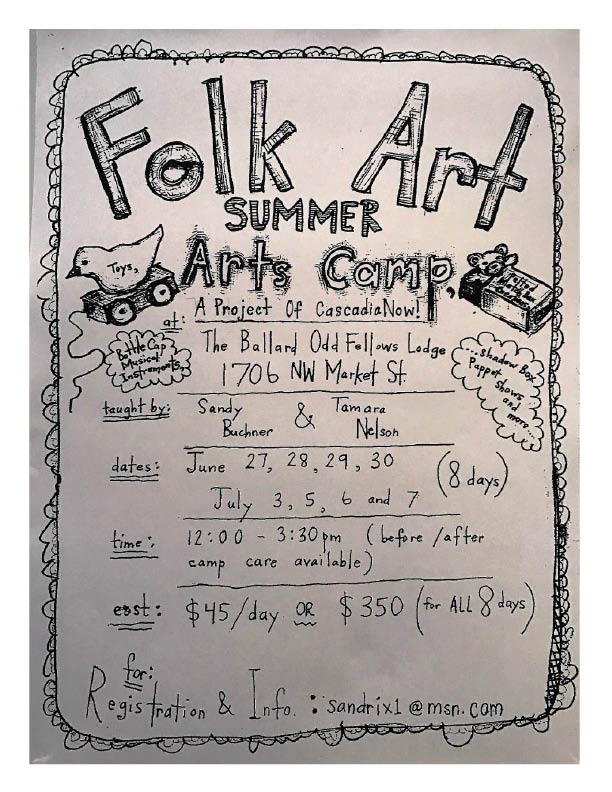 Folk Art
SUMMER
Toys,
Arts Camp,
A Project Of CascadiaNow!
at:
Bottle Cap
Musical
Instruments,
The Ballard Odd Fellows Lodge
1706 NW Market St.
...Shadow Box
Puppet Shows
and
more...
taught by: Sandy & Tamara
Buchner Nelson
dates: June 27, 28, 29, 30 (8 days)
July 3, 5, 6 and 7
time: 12:00 - 3:30pm (before/after
camp care available)
cost: $45/day OR $350 (for ALL 8 days)
for:
Registration & Info. : sandrix1@msn.com